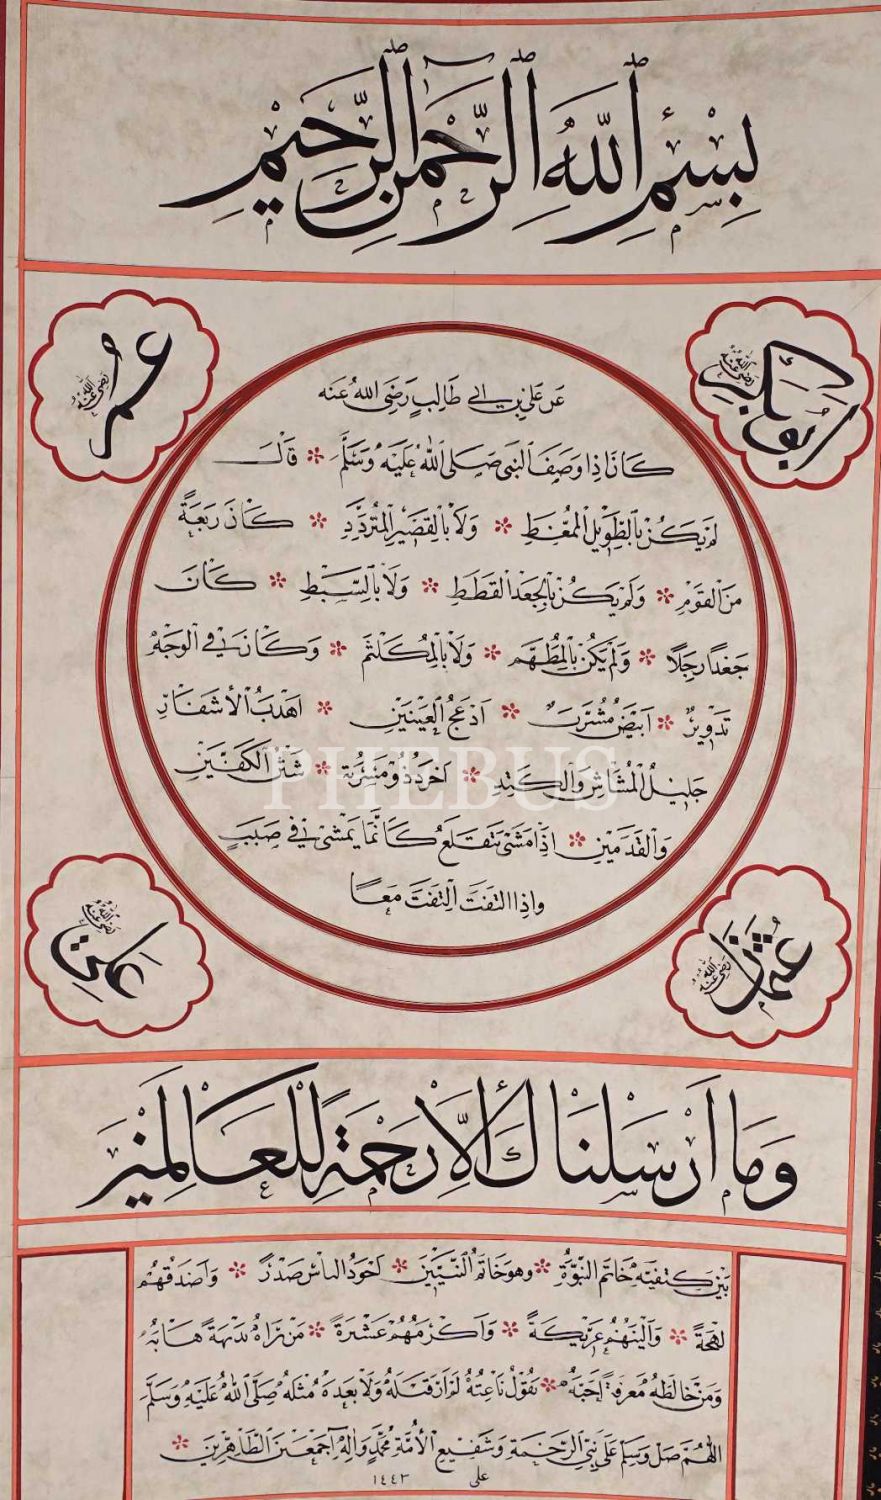 بِسْمِ اللّٰهِ الرَّحْمٰنِ الرَّحِيمِ
ابوبكر رضي الله عنه
عمر رضي الله عنه
عن علي بن ابي طالب رضي الله عنه
كان اذا وصف النبي صلى الله عليه وسلم * قال
لم يكن بالطويل الممغط * ولا بالقصير المتردد * كان ربعة
من القوم * ولم يكن بالجعد القطط * ولا بالسبط * كان
جعدا رجلا * ولم يكن بالمطهم * ولا بالمكلثم * وكان في الوجه
تدوير * ابيض مشرب * ادعج العينين * اهدب الأشفار
جليل المشاش والكتد * اجرد ذو مسربة * شثن الكفين
والقدمين * اذا مشى تقلع كانما يمشي في صبب
واذا التفت التفت معا
PHEBUS
عثمان رضي الله عنه
علي رضي الله عنه
وَمَا اَرْسَلْنَاكَ اِلَّا رَحْمَةً لِلْعَالَمِينَ
بين كتفيه خاتم النبوة * وهو خاتم النبيين * اجود الناس صدرا * واصدقهم
لهجة * والينهم عريكة * واكرمهم عشرة * من رآه بديهة هابه
ومن خالطه معرفة احبه * يقول ناعته لم ار قبله ولا بعده مثله صلى الله عليه وسلم
اللهم صل وسلم على نبي الرحمة وشفيع الأمة محمد وآله اجمعين الطاهرين *
علي ١٤٤٣